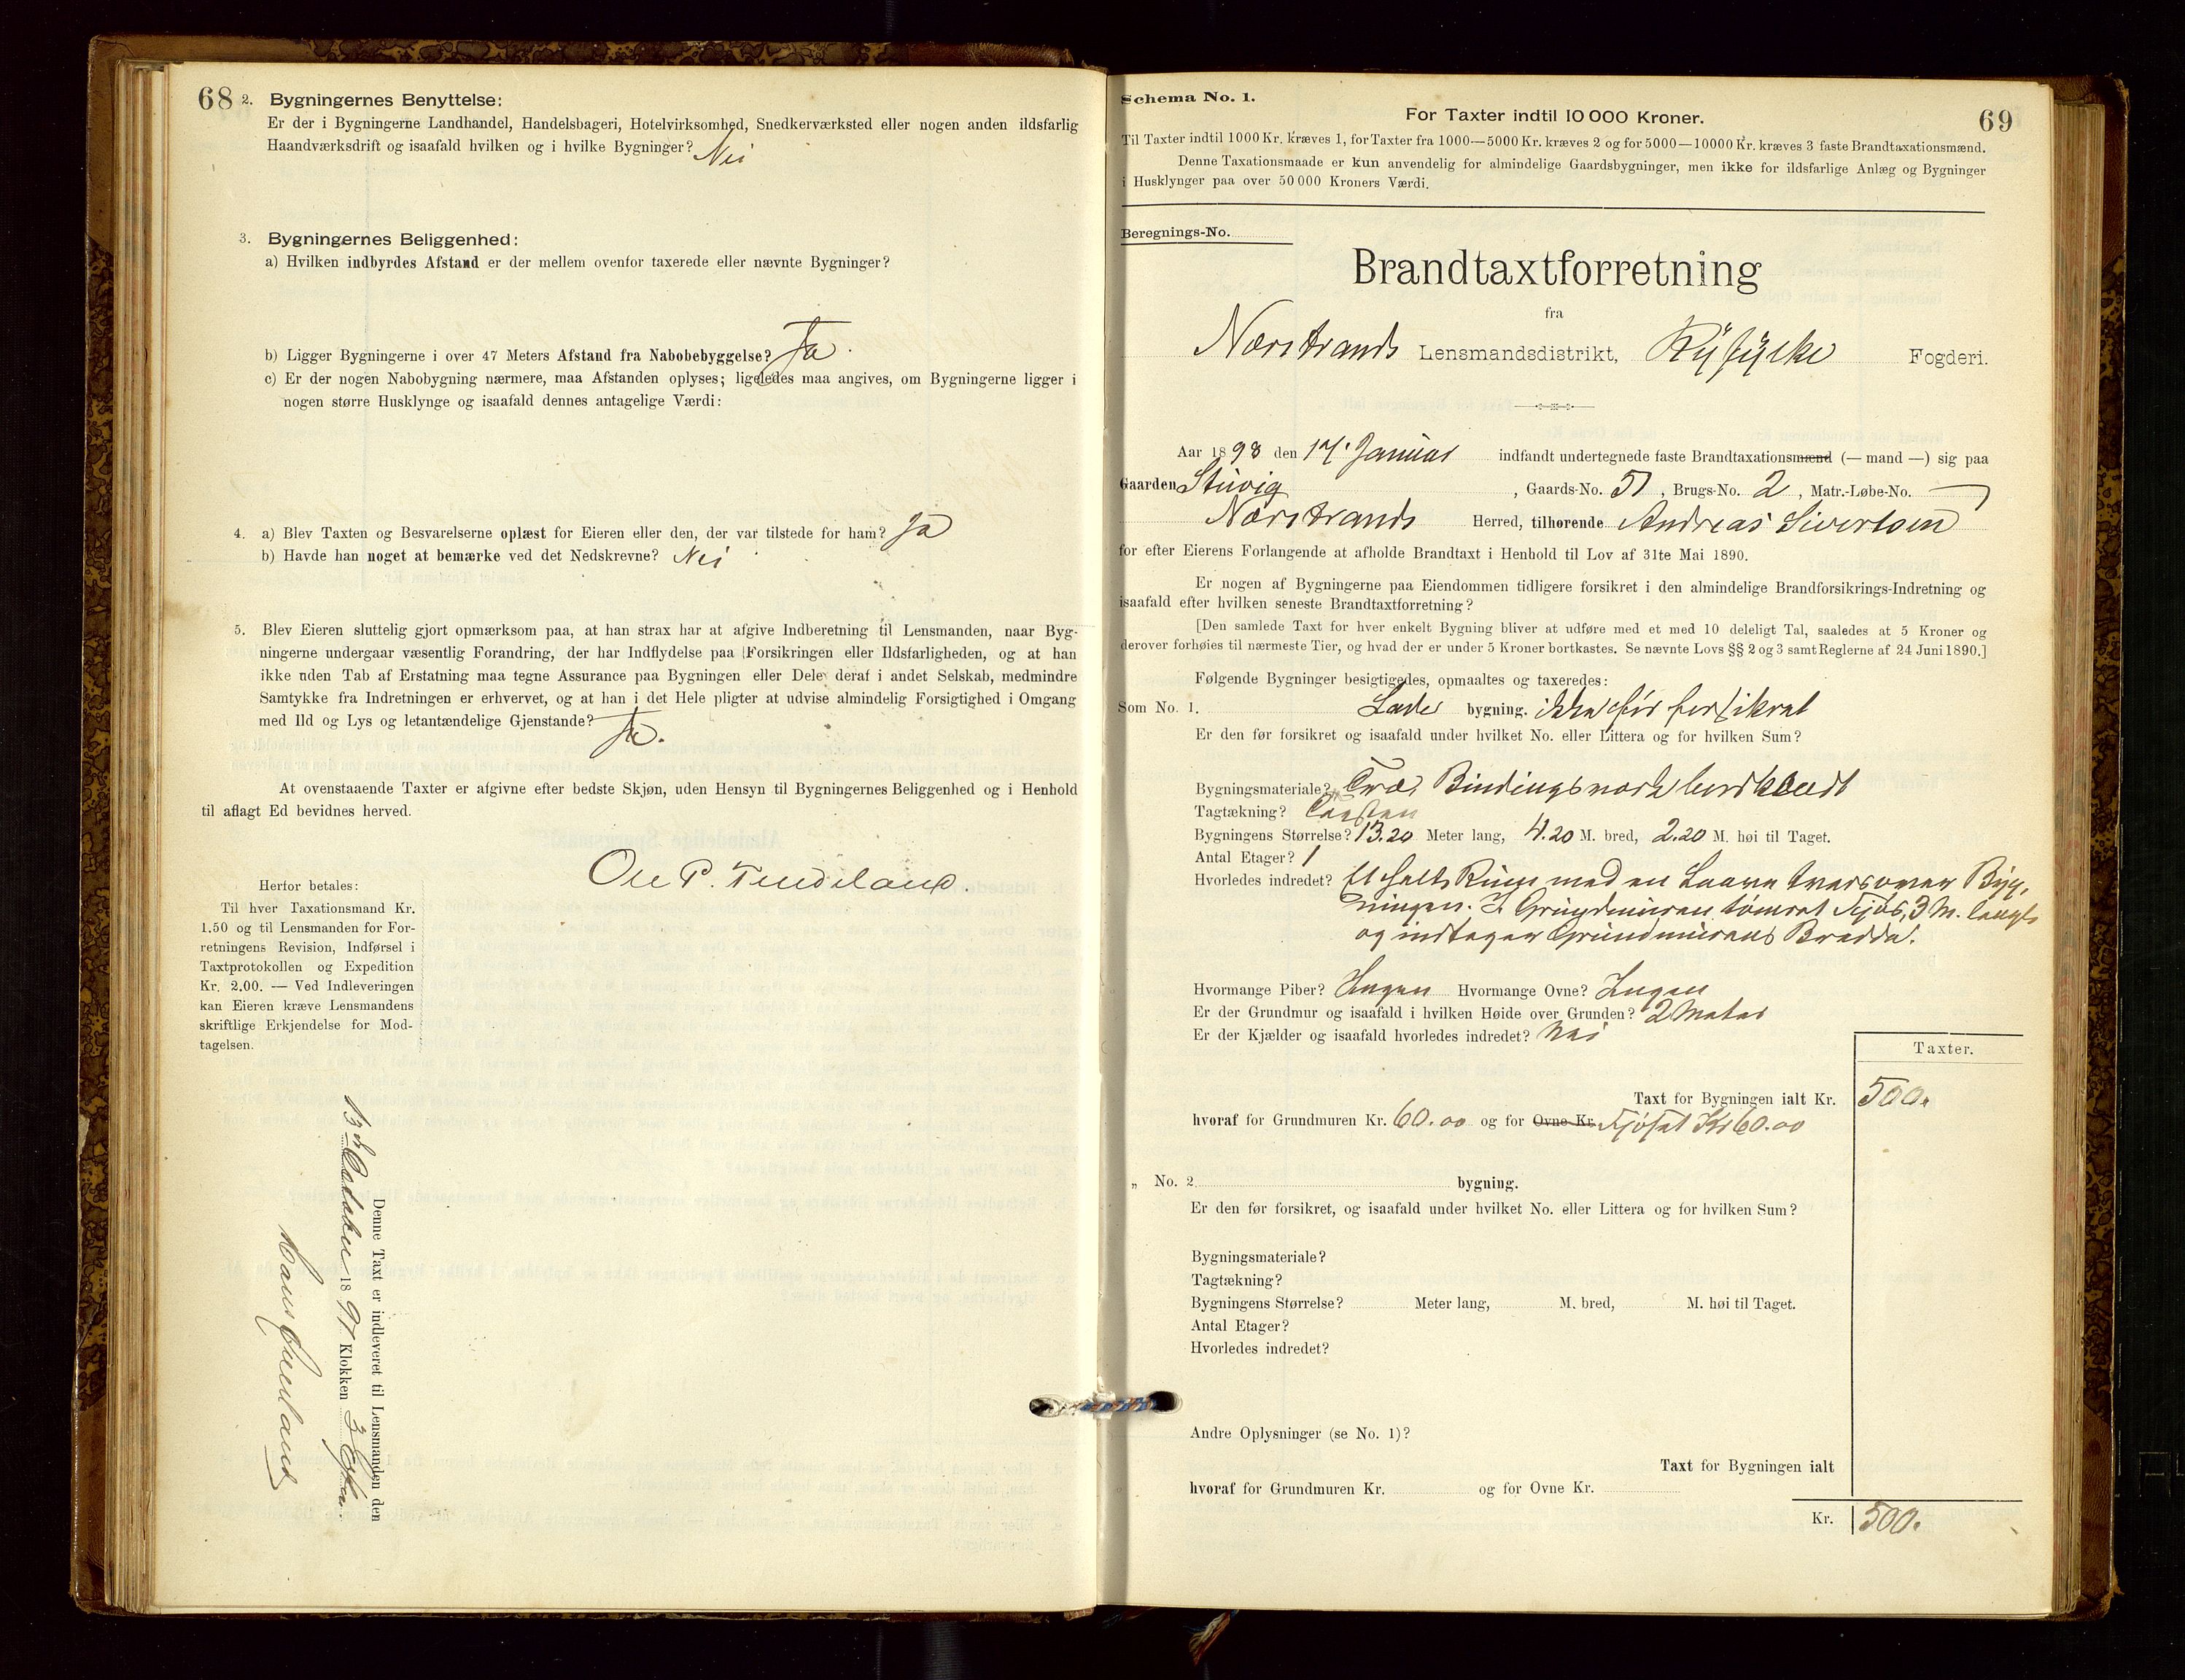 68 2. Bygningernes Benyttelse:
Er der i Bygningerne Landhandel, Handelsbageri, Hotelvirksomhed, Snedkerværksted eller nogen anden ildsfarlig
Haandværksdrift og isaafald hvilken og i hvilke Bygninger? Nei
3. Bygningernes Beliggenhed:
a) Hvilken indbyrdes Afstand er der mellem ovenfor taxerede eller nævnte Bygninger?
b) Ligger Bygningerne i over 47 Meters Afstand fra Nabobebyggelse? Ja.
c) Er der nogen Nabobygning nærmere, maa Afstanden oplyses; ligeledes maa angives, om Bygningerne ligger i
nogen større Husklynge og isaafald dennes antagelige Værdi:
4. a) Blev Taxten og Besvarelserne oplæst for Eieren eller den, der var tilstede for ham? Ja
b) Havde han noget at bemærke ved det Nedskrevne? Nei
5. Blev Eieren sluttelig gjort opmærksom paa, at han strax har at afgive Indberetning til Lensmanden, naar Byg-
ningerne undergaar væsentlig Forandring, der har Indflydelse paa Forsikringen eller Ildsfarligheden, og at han
ikke uden Tab af Erstatning maa tegne Assurance paa Bygningen eller Dele deraf i andet Selskab, medmindre
Samtykke fra Indretningen er erhvervet, og at han i det Hele pligter at udvise almindelig Forsigtighed i Omgang
med Ild og Lys og letantændelige Gjenstande? Ja.
At ovenstaaende Taxter er afgivne efter bedste Skjøn, uden Hensyn til Bygningernes Beliggenhed og i Henhold
til aflagt Ed bevidnes herved.
Ole P. Tendeland.
Herfor betales:
Til hver Taxationsmand Kr.
1.50 og til Lensmanden for For-
retningens Revision, Indførsel i
Taxtprotokollen og Expedition
Kr. 2.00. — Ved Indleveringen
kan Eieren kræve Lensmandens
skriftlige Erkjendelse for Mod-
tagelsen.
Denne Taxt er indleveret til Lensmanden den
13de October 1897 Klokken 3 Efm.
Schema No. 1.
For Taxter indtil 10 000 Kroner.
69
Til Taxter indtil 1000 Kr. kræves 1, for Taxter fra 1000—5000 Kr. kræves 2 og for 5000—10000 Kr. kræves 3 faste Brandtaxationsmænd.
Denne Taxationsmaade er kun anvendelig for almindelige Gaardsbygninger, men ikke for ildsfarlige Anlæg og Bygninger
i Husklynger paa over 50 000 Kroners Værdi.
Beregnings-No.
Brandtaxtforretning
fra
Nærstrands Lensmandsdistrikt, Ryfylke Fogderi.
Aar 1898 den 14. Januar indfandt undertegnede faste Brandtaxationsmænd (— mand —) sig paa
Gaarden Stuvig, Gaards-No. 51, Brugs-No. 2, Matr.-Løbe-No. —
Nærstrands Herred, tilhørende Andreas Sivertsen
for efter Eierens Forlangende at afholde Brandtaxt i Henhold til Lov af 31te Mai 1890.
Er nogen af Bygningerne paa Eiendommen tidligere forsikret i den almindelige Brandforsikrings-Indretning og
isaafald efter hvilken seneste Brandtaxtforretning?
[Den samlede Taxt for hver enkelt Bygning bliver at udføre med et med 10 deleligt Tal, saaledes at 5 Kroner og
derover forhøies til nærmeste Tier, og hvad der er under 5 Kroner bortkastes. Se nævnte Lovs §§ 2 og 3 samt Reglerne af 24 Juni 1890.]
Følgende Bygninger besigtigedes, opmaaltes og taxeredes:
Som No. 1. Lade bygning. ikke før forsikret
Er den før forsikret og isaafald under hvilket No. eller Littera og for hvilken Sum?
Bygningsmateriale? Træ, Bindingsværk bordklædt
Tagtækning?
Bygningens Størrelse? 13.20 Meter lang, 4.20 M. bred, 2.20 M. høi til Taget.
Antal Etager? 1
Hvorledes indredet? Et helt Rum med en Laave tversover Byg,
ningen. I Grundmuren tømret Fjøs, 3 M. langt
og indtager Grundmurens Bredde.
Hvormange Piber? Ingen Hvormange Ovne? Ingen
Er der Grundmur og isaafald i hvilken Høide over Grunden? 2 Meter
Er der Kjælder og isaafald hvorledes indredet? Nei
Taxter.
Taxt for Bygningen ialt Kr. 500.
hvoraf for Grundmuren Kr. 60.00 og for Ovne Kr. Fjøset Kr 60.00
„ No. 2 bygning.
Er den før forsikret, og isaafald under hvilket No. eller Littera og for hvilken Sum?
Bygningsmateriale?
Tagtækning?
Bygningens Størrelse? Meter lang, M. bred, M. høi til Taget.
Antal Etager?
Hvorledes indredet?
Andre Oplysninger (se No. 1)?
Taxt for Bygningen ialt
hvoraf for Grundmuren Kr. og for Ovne Kr.
Kr. 500.